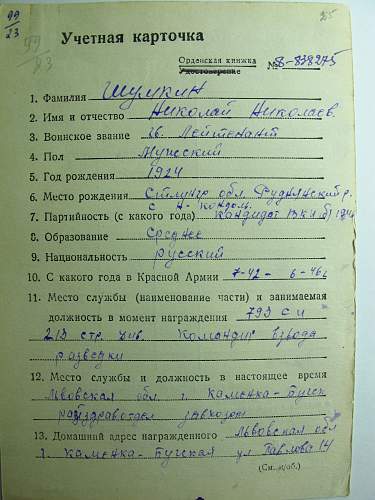 99/23
25
99/23
Учетная карточка
Орденская книжка
Удостоверение
№ Б-838275
1. Фамилия Шумкин
2. Имя и отчество Николай Николаев.
3. Воинское звание гв. Лейтенант
4. Пол Мужской
5. Год рождения 1924
6. Место рождения Стлингр обл. Руднянский р.
7. Партийность (с какого года) кандидат ВКП(б)
8. Образование Среднее
9. Национальность русский
10. С какого года в Красной Армии 7-42 - 6-46г
11. Место службы (наименование части) и занимаемая
должность в момент награждения 793 с п
213 стр. див. Командир взвода
разведки
12. Место службы и должность в настоящее время
Львовская обл. г. Каменка-Бугск
райздравотдел завхозом
13. Домашний адрес награжденного Львовская обл
г. Каменка-Бугская ул Павлова 14
(См. н/об.)